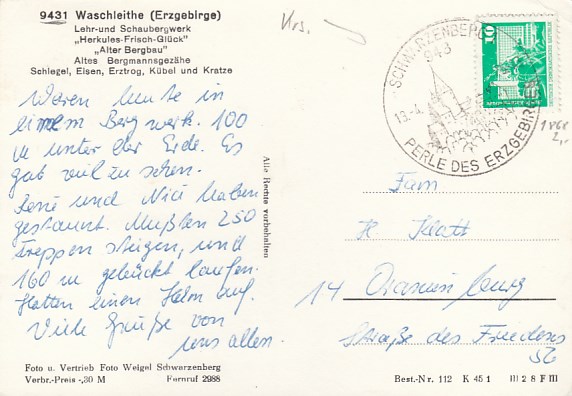 9431 Waschleithe (Erzgebirge)
Lehr-und Schaubergwerk
„Herkules-Frisch-Glück"
„Alter Bergbau"
Altes Bergmannsgezähe
Schlegel, Eisen, Erztrog, Kübel und Kratze
Waren heute in
einem Bergwerk. 100
m unter der Erde. Es
gab viel zu sehen.
René und Nici haben
gestaunt. Mußten 250
Treppen steigen, und
160 m gebückt laufen.
Hatten einen Helm auf.
Viele Grüße von
uns allen.
Foto u. Vertrieb Foto Weigel Schwarzenberg
Verbr.-Preis -,30 M Fernruf 2988
Alle Rechte vorbehalten
SCHWARZENBERG
943
PERLE DES ERZGEBIRGES
10
1868
2,-
Fam
H Klatt
14 Oranienburg
Straße des Friedens
56
Best.-Nr. 112 K 45 1 III 2 8 F III